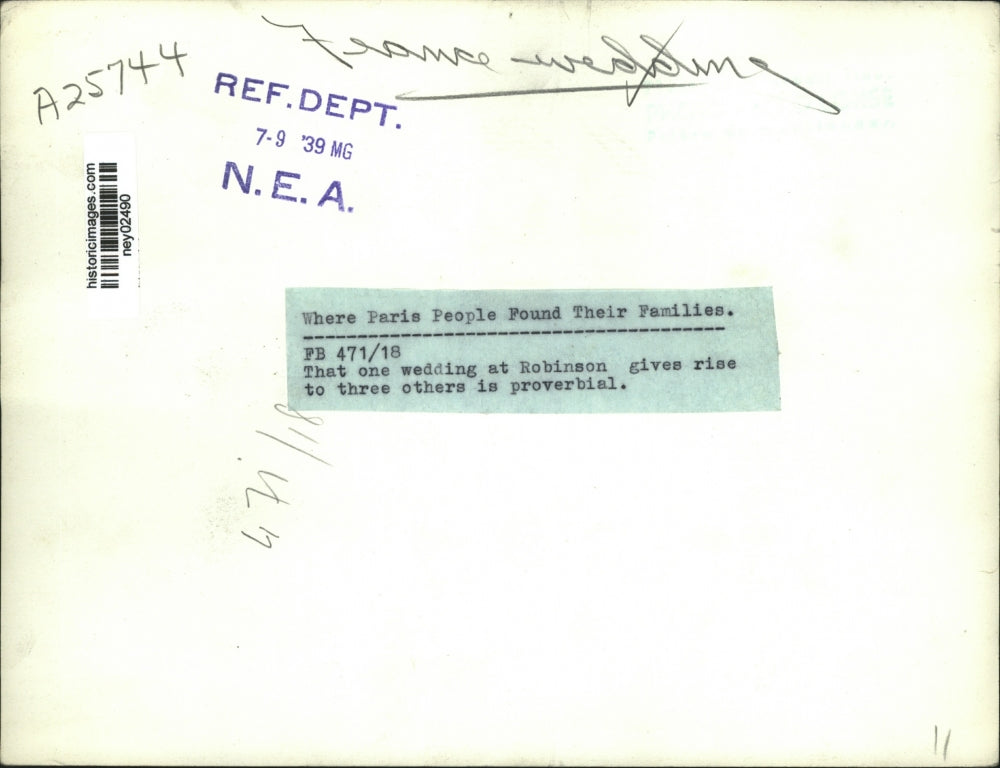 France wedding
A25744
REF. DEPT.
7-9 '39 MG
N. E. A.
historicimages.com
ney02490
Where Paris People Found Their Families.
FB 471/18
That one wedding at Robinson gives rise
to three others is proverbial.
471/18
11